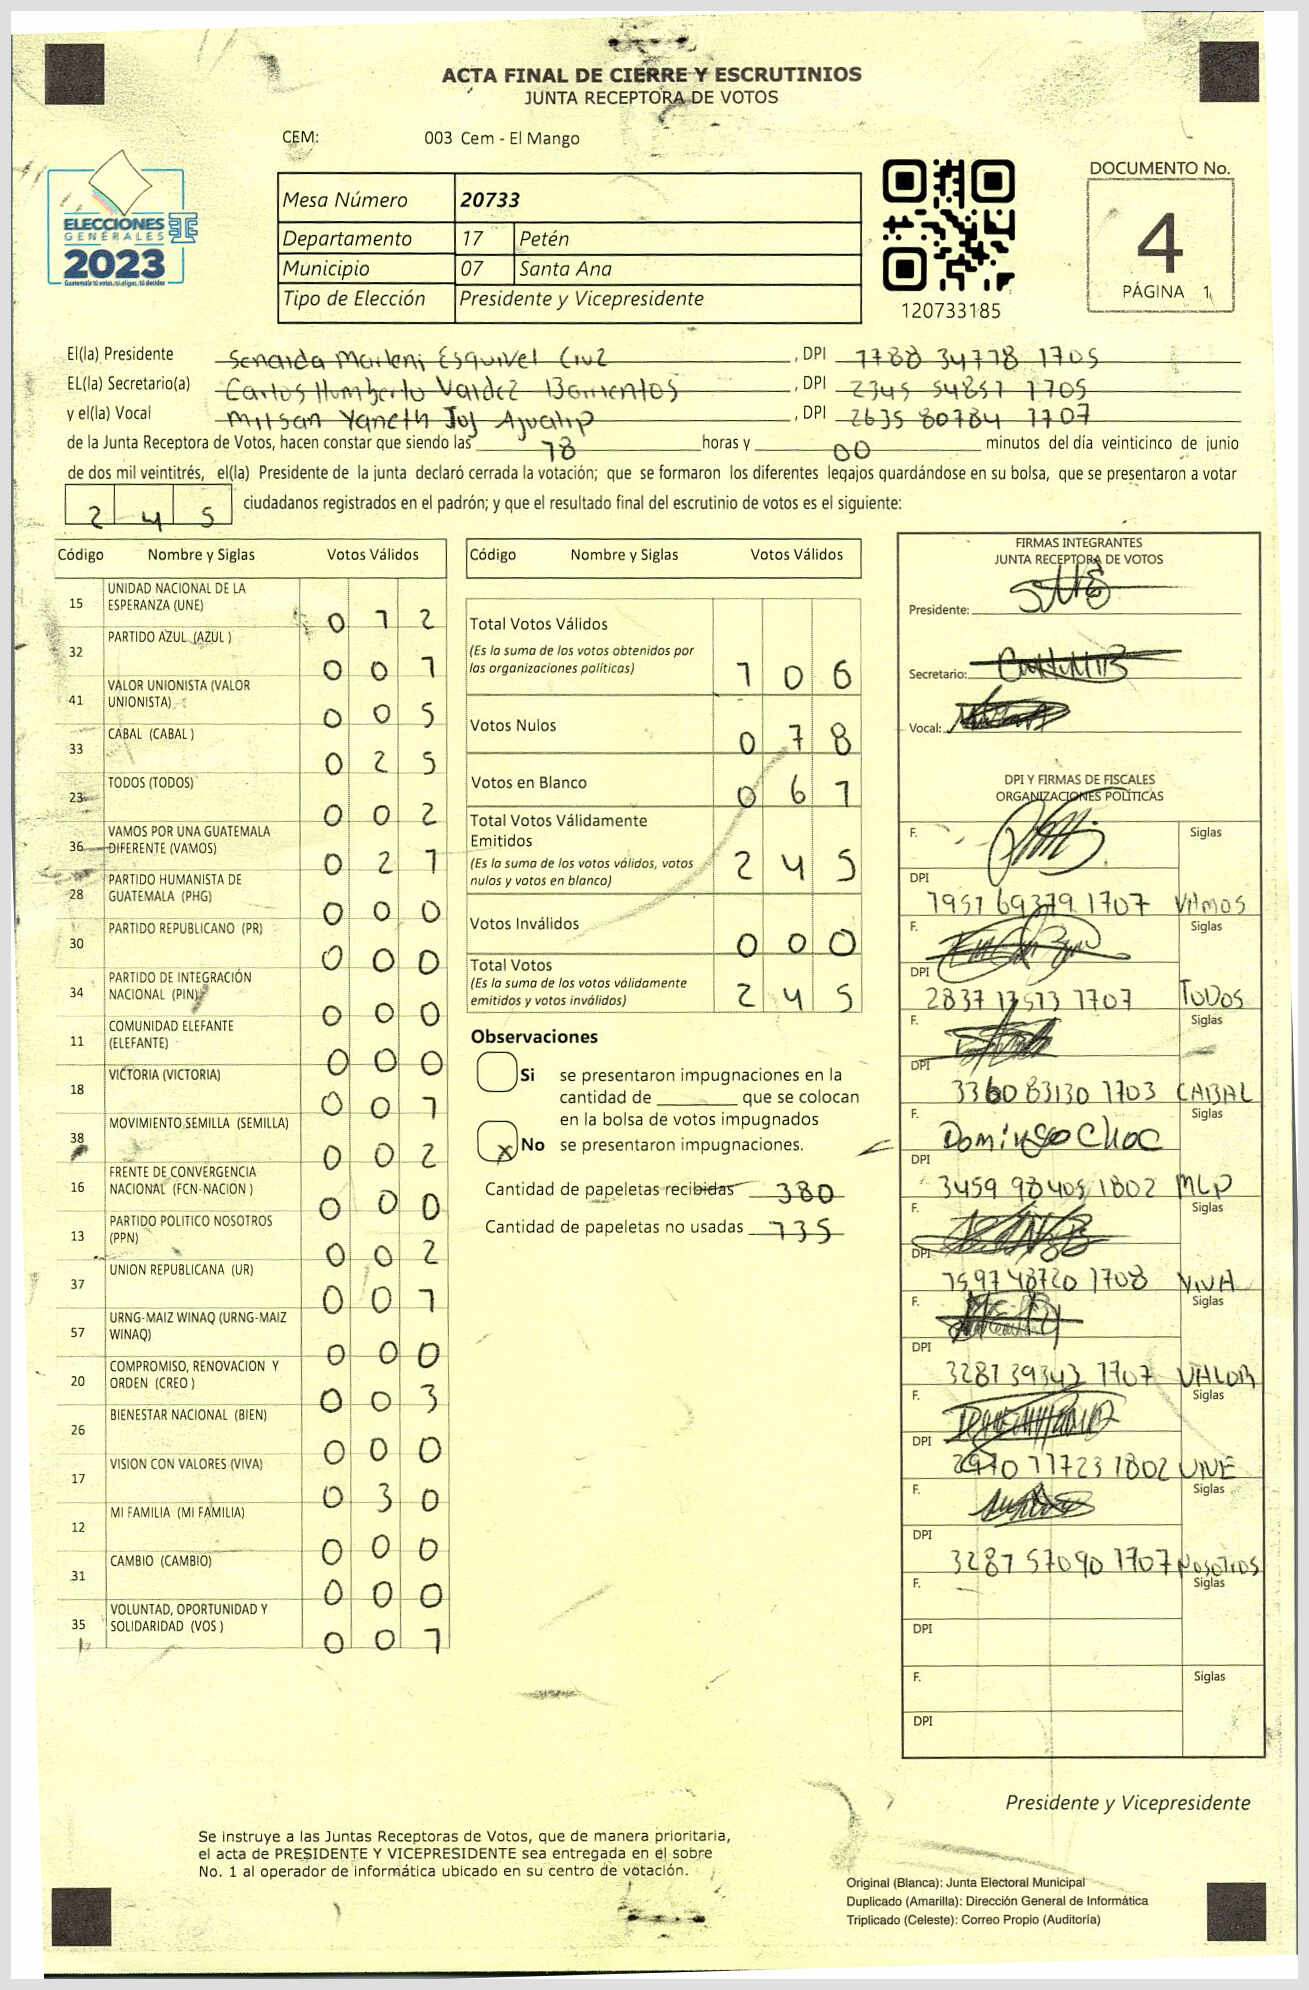 ACTA FINAL DE CIERRE Y ESCRUTINIOS
JUNTA RECEPTORA DE VOTOS
CEM: 003 Cem - El Mango
ELECCIONES
GENERALES
2023
Guatemala tú votas, tú eliges, tú decides
Mesa Número 20733
Departamento 17 Petén
Municipio 07 Santa Ana
Tipo de Elección Presidente y Vicepresidente
120733185
DOCUMENTO No.
4
PÁGINA 1
El(la) Presidente Senaida Marleni Esquivel Cruz, DPI 1788 34778 1705
EL(la) Secretario(a) Carlos Humberto Valdez Barrientos, DPI 2345 54857 1705
y el(la) Vocal Yaneth, DPI 2635 80784 1707
de la Junta Receptora de Votos, hacen constar que siendo las 18 horas y 00 minutos del día veinticinco de junio
de dos mil veintitrés, el(la) Presidente de la junta declaró cerrada la votación; que se formaron los diferentes legajos quardándose en su bolsa, que se presentaron a votar
245 ciudadanos registrados en el padrón; y que el resultado final del escrutinio de votos es el siguiente:
Código Nombre y Siglas Votos Válidos
15 UNIDAD NACIONAL DE LA ESPERANZA (UNE) 012
32 PARTIDO AZUL (AZUL ) 001
41 VALOR UNIONISTA (VALOR UNIONISTA) 005
33 CABAL (CABAL ) 025
23 TODOS (TODOS) 002
36 VAMOS POR UNA GUATEMALA DIFERENTE (VAMOS) 021
28 PARTIDO HUMANISTA DE GUATEMALA (PHG) 000
30 PARTIDO REPUBLICANO (PR) 000
34 PARTIDO DE INTEGRACIÓN NACIONAL (PIN) 000
11 COMUNIDAD ELEFANTE (ELEFANTE) 000
18 VICTORIA (VICTORIA) 001
38 MOVIMIENTO SEMILLA (SEMILLA) 002
16 FRENTE DE CONVERGENCIA NACIONAL (FCN-NACION ) 000
13 PARTIDO POLITICO NOSOTROS (PPN) 002
37 UNION REPUBLICANA (UR) 001
57 URNG-MAIZ WINAQ (URNG-MAIZ WINAQ) 000
20 COMPROMISO, RENOVACION Y ORDEN (CREO ) 003
26 BIENESTAR NACIONAL (BIEN) 000
17 VISION CON VALORES (VIVA) 030
12 MI FAMILIA (MI FAMILIA) 000
31 CAMBIO (CAMBIO) 000
35 VOLUNTAD, OPORTUNIDAD Y SOLIDARIDAD (VOS ) 001
Código Nombre y Siglas Votos Válidos
Total Votos Válidos 106
(Es la suma de los votos obtenidos por
las organizaciones políticas)
Votos Nulos 078
Votos en Blanco 061
Total Votos Válidamente
Emitidos 245
(Es la suma de los votos válidos, votos
nulos y votos en blanco)
Votos Inválidos 000
Total Votos 245
(Es la suma de los votos válidamente
emitidos y votos inválidos)
Observaciones
Si se presentaron impugnaciones en la
cantidad de ________ que se colocan
en la bolsa de votos impugnados
x No se presentaron impugnaciones.
Cantidad de papeletas recibidas 380
Cantidad de papeletas no usadas 135
FIRMAS INTEGRANTES
JUNTA RECEPTORA DE VOTOS
Presidente:
Secretario:
Vocal:
DPI Y FIRMAS DE FISCALES
ORGANIZACIONES POLÍTICAS
F. Siglas
DPI 1951 69379 1707 VAMOS
F. Siglas
DPI 2837 13513 1707 TODOS
F. Siglas
DPI 3360 83130 1703 CABAL
F. Domingo Choc Siglas
DPI 3459 98405 1802 MLP
F. Siglas
DPI 1597 48720 1708 VIVA
F. Siglas
DPI 3287 39343 1707 VALOR
F. Siglas
DPI 2970 11723 1802 UNE
F. Siglas
DPI 3287 57090 1707 NOSOTROS
F. Siglas
DPI
F. Siglas
DPI
Presidente y Vicepresidente
Se instruye a las Juntas Receptoras de Votos, que de manera prioritaria,
el acta de PRESIDENTE Y VICEPRESIDENTE sea entregada en el sobre
No. 1 al operador de informática ubicado en su centro de votación.
Original (Blanca): Junta Electoral Municipal
Duplicado (Amarilla): Dirección General de Informática
Triplicado (Celeste): Correo Propio (Auditoría)